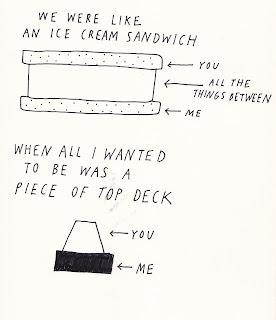 WE WERE LIKE
AN ICE CREAM SANDWICH
YOU
ALL THE
THINGS BETWEEN
ME
WHEN ALL I WANTED
TO BE WAS A
PIECE OF TOP DECK
YOU
ME